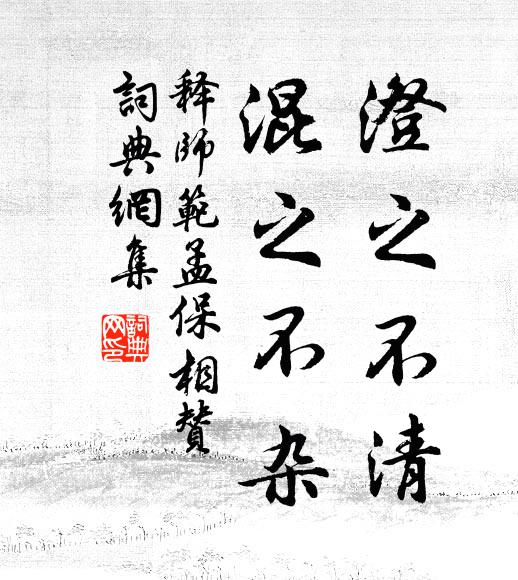 澄之不清
混之不杂
释师範孟保相赞
詞典網集
詞典网印